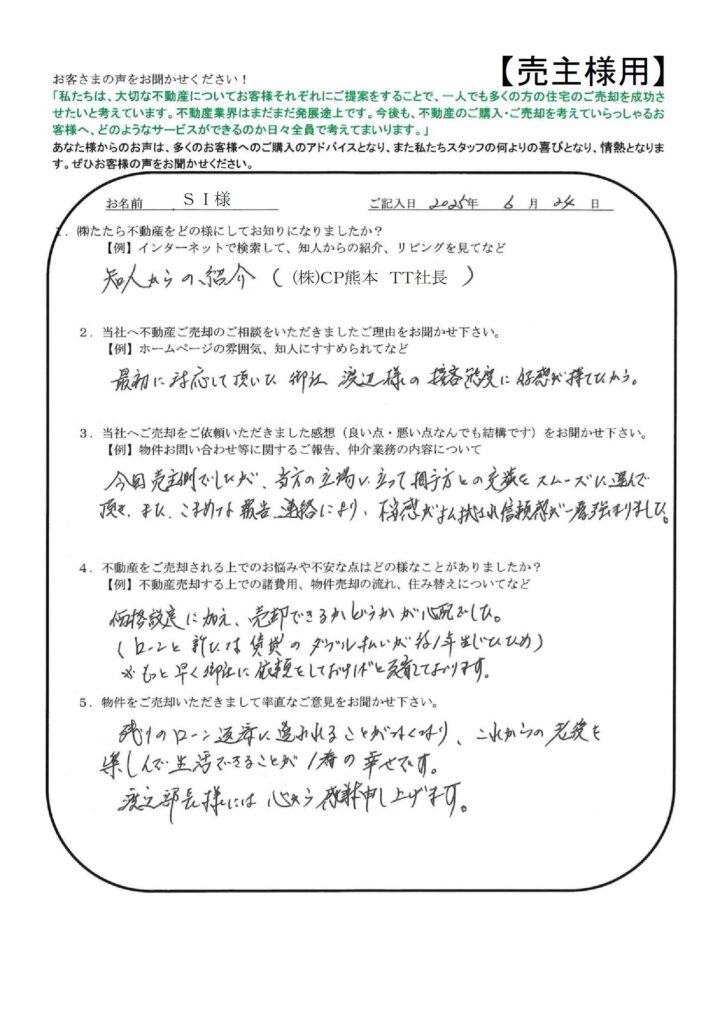 【売主様用】
お客さまの声をお聞かせください！
「私たちは、大切な不動産についてお客様それぞれにご提案をすることで、一人でも多くの方の住宅のご売却を成功さ
せたいと考えています。不動産業界はまだまだ発展途上です。今後も、不動産のご購入・ご売却を考えていらっしゃるお
客様へ、どのようなサービスができるのか日々全員で考えてまいります。」
あなた様からのお声は、多くのお客様へのご購入のアドバイスとなり、また私たちスタッフの何よりの喜びとなり、情熱となりま
す。ぜひお客様の声をお聞かせください。
お名前 ＳＩ様 ご記入日 2025年 6 月 24 日
1．㈱たたら不動産をどの様にしてお知りになりましたか？
【例】インターネットで検索して、知人からの紹介、リビングを見てなど
知人からの紹介 （ (株)CP熊本 TT社長 ）
2．当社へ不動産ご売却のご相談をいただきましたご理由をお聞かせ下さい。
【例】ホームページの雰囲気、知人にすすめられてなど
最初に対応して頂いた御社 渡辺様の接客態度に好感が持てたから。
3．当社へご売却をご依頼いただきました感想（良い点・悪い点なんでも結構です）をお聞かせ下さい。
【例】物件お問い合わせ等に関するご報告、仲介業務の内容について
今回売主側でしたが、当方の立場に立って相手方との交渉をスムーズに運んで
頂き、また、こまめな報告連絡により、不信感が払拭され信頼感が一層強まりました。
4．不動産をご売却される上でのお悩みや不安な点はどの様なことがありましたか？
【例】不動産売却する上での諸費用、物件売却の流れ、住み替えについてなど
価格設定に加え、売却できるかどうかが心配でした。
（ローンと新たな賃貸のダブル払いが約1年生じたため）
※もっと早く御社に依頼をしておけばと実着しております。
5．物件をご売却いただきまして率直なご意見をお聞かせ下さい。
残りのローン返済に追われることがなくなり、これからの老後を
楽しんで生活できることが1番の幸せです。
渡辺部長様には心から感謝申し上げます。